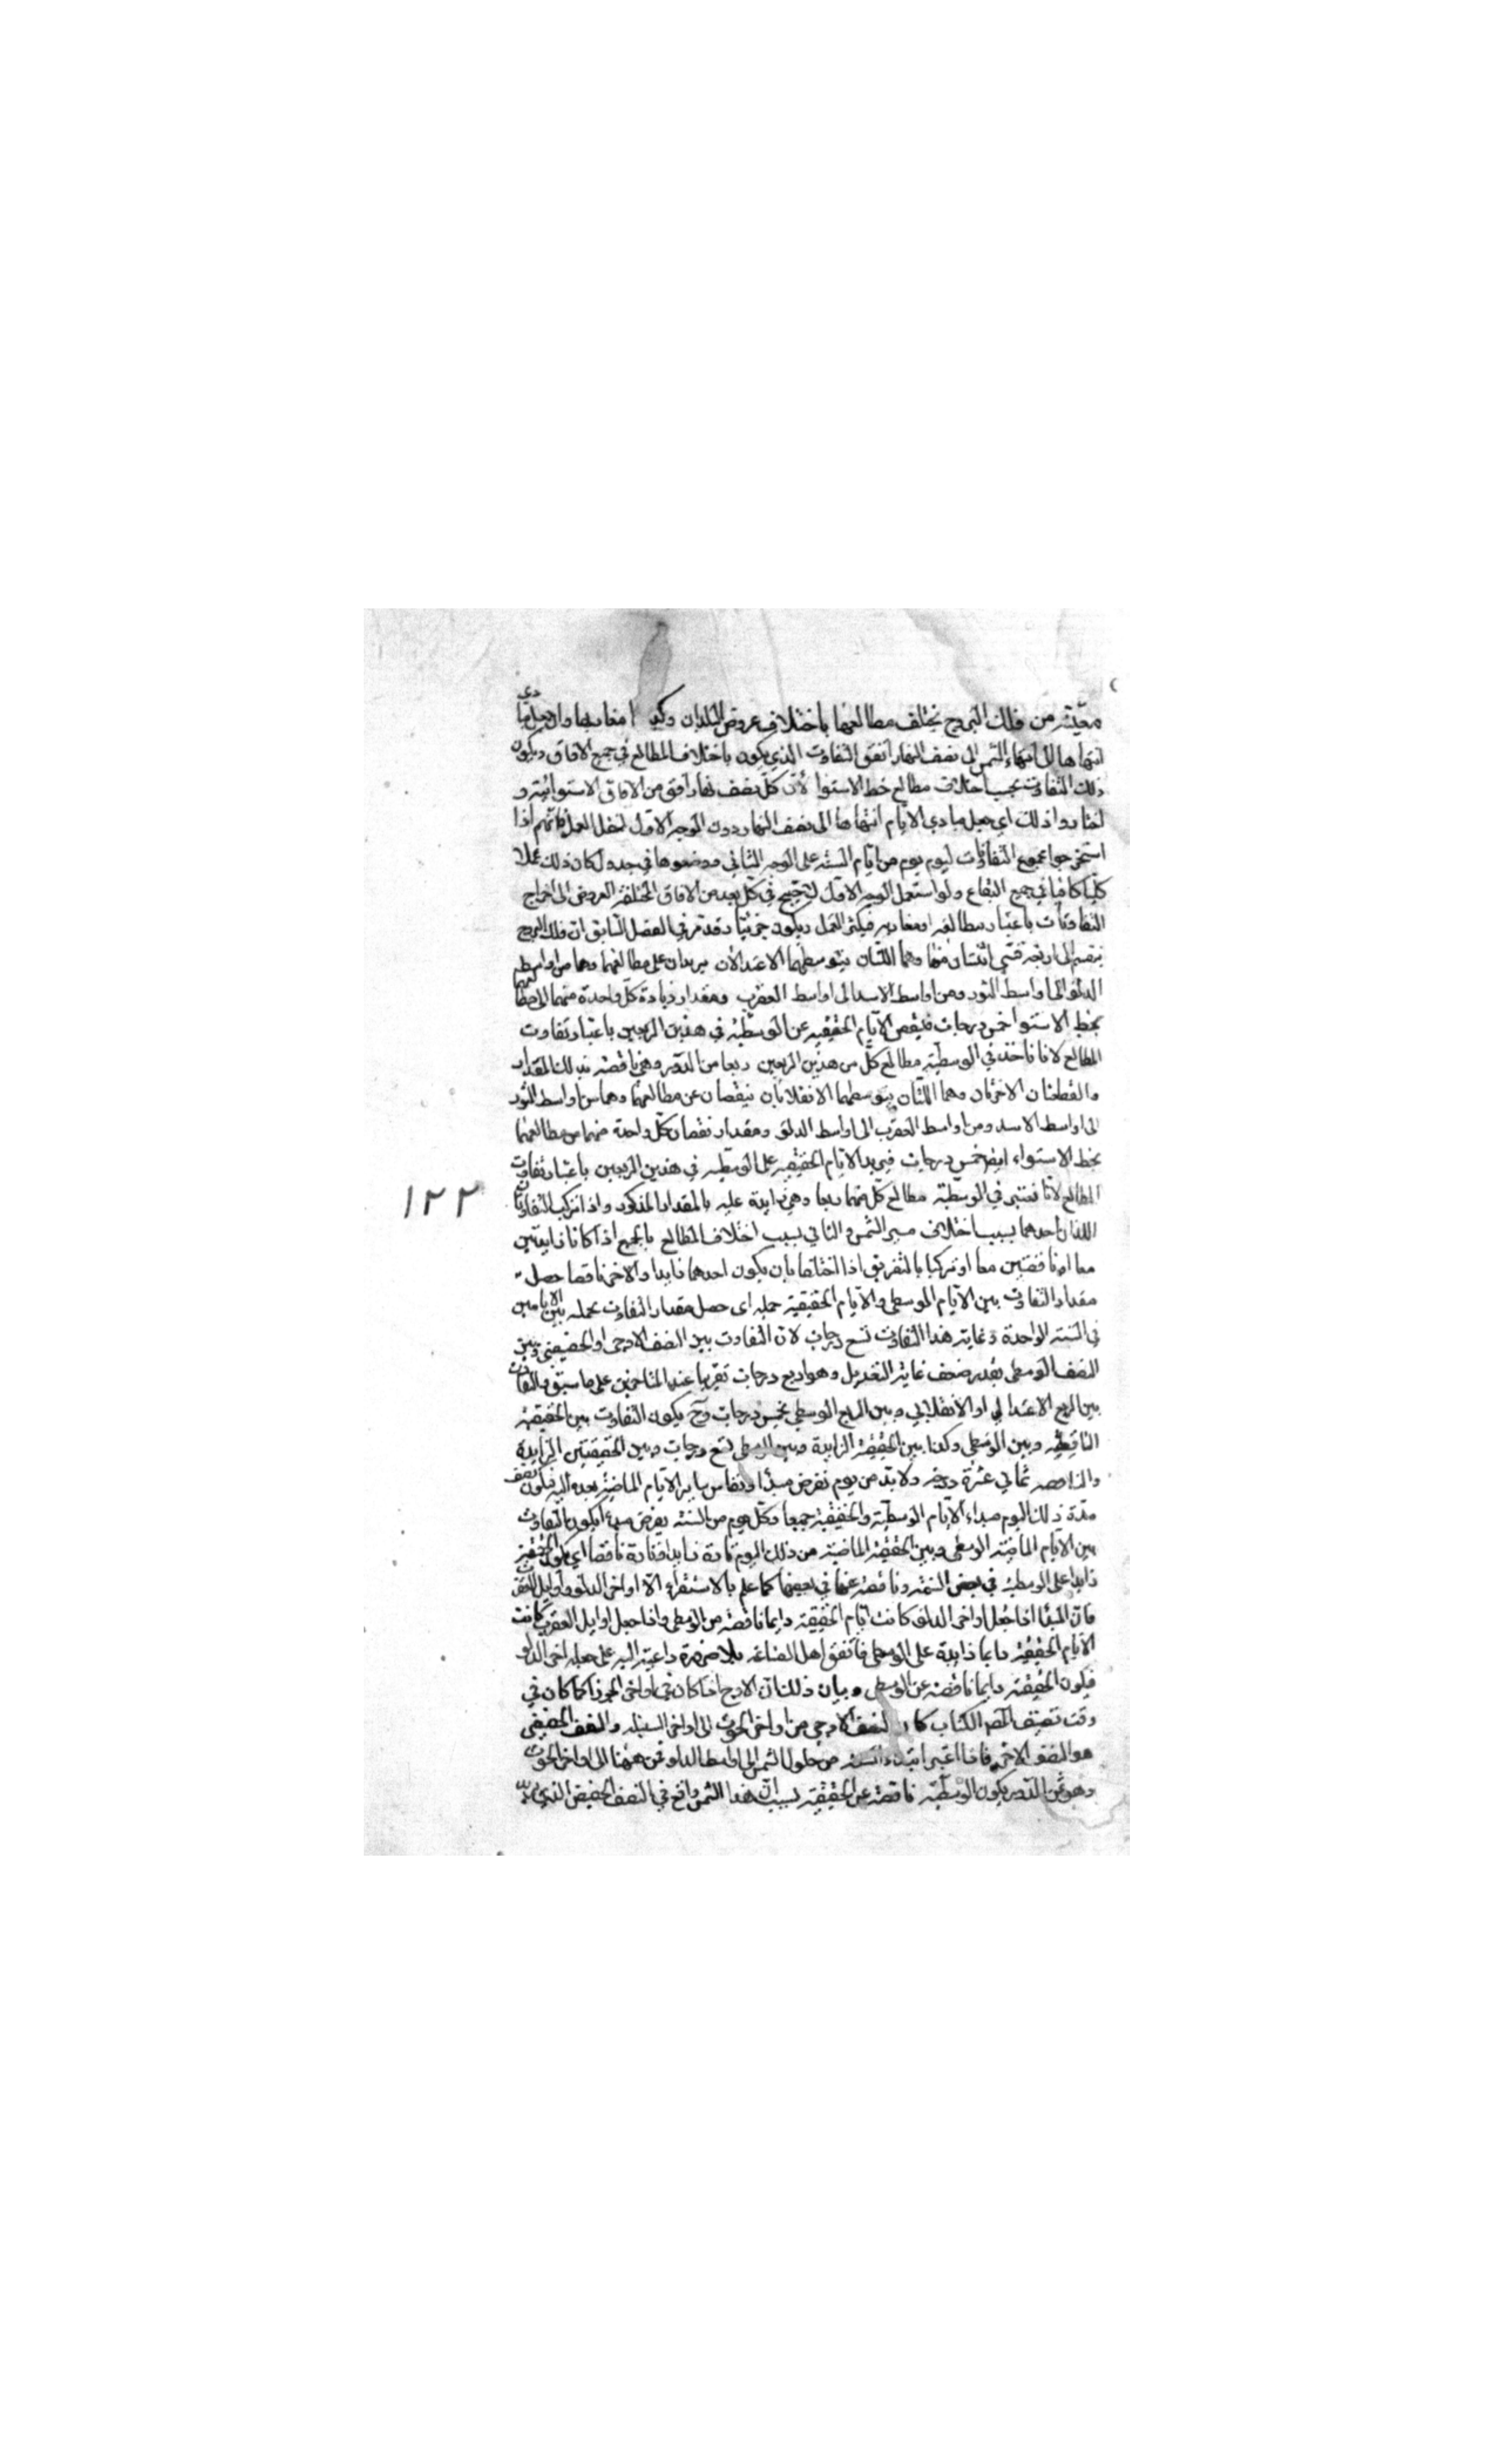 معينة من فلك البروج يختلف مطالعها باختلاف عروض البلدان وكذا مغاربها وان جعل مبادي
انتهاءها الى انتهاء الشمس الى نصف النهار اتفق التفاوت الذي يكون باختلاف المطالع في جميع الافاق ويكون
ذلك التفاوت بحسب اختلاف مطالع خط الاستوا لان كل نصف نهار افق من الافاق الاستوائية و
اختاروا ذلك اي جعل مبادي الايام انتهاءها الى نصف النهار دون الوجه الاول لسهل العمل فانهم اذا
استخرجوا مجموع التفاوتات ليوم يوم من ايام السنة على الوجه الثاني ووضعوها في جدول كان ذلك عملا
كليا كافيا في جميع البقاع ولو استعمل الوجه الاول لاحتيج في كل بعد من الافاق المختلفة العروض الى اخراج
التفاوتات باعتبار مطالعه او مغاربه فيكثر العمل ويكون جزئيا وقد مر في الفصل السابق ان فلك البروج
ينقسم الى اربعة قسي اثنتان منها وهما اللتان يتوسطهما الاعتدالان يزيدان على مطالعهما وهما من اواسط
الدلو الى اواسط الثور ومن اواسط الاسد الى اواسط العقرب ومقدار زيادة كل واحدة منهما الى مطالعهما
بخط الاستوا خمس درجات فينقص الايام الحقيقية عن الوسطية في هذين الربعين باعتبار تفاوت
المطالع لانا ناخذ في الوسطية مطالع كل من هذين الربعين ربعا من الدور وهي ناقصة بذلك المقدار
والقطعتان الاخريان وهما اللتان يتوسطهما الانقلابان ينقصان عن مطالعهما وهما من اواسط الثور
الى اواسط الاسد ومن اواسط العقرب الى اواسط الدلو ومقدار نقصان كل واحدة منهما من مطالعهما
بخط الاستواء ايض خمس درجات فيزيد الايام الحقيقية على الوسطية في هذين الربعين باعتبار تفاوت
المطالع لانا نعتبر في الوسطية مطالع كل منهما ربعا وهي زايدة عليه بالمقدار المذكور واذا تركب التفاوتان
اللذان احدهما بسبب اختلاف مسير الشمس والثاني بسبب اختلاف المطالع بالجمع اذا كانا زايدين
معا او ناقصين معا او تركبا بالتفريق اذا اختلفا بان يكون احدهما زايدا والاخر ناقصا حصل
مقدار التفاوت بين الايام الوسطى والايام الحقيقية جملة اى حصل مقدار التفاوت بجملة بين الايامين
في السنة الواحدة وغاية هذا التفاوت تسع درجات لان التفاوت بين النصف الاوجى او الحضيضى وبين
النصف الوسطى بقدر ضعف غاية التعديل وهو اربع درجات تقريبا عند المتاخرين على ما سبق والتفاوت
بين الربع الاعتدالي او الانقلابي وبين الربع الوسطي بخمس درجات وح يكون التفاوت بين الحقيقية
الناقصة وبين الوسطى وكذا بين الحقيقية الزايدة وبين الوسطى تسع درجات وبين الحقيقتين الزايدة
والناقصة ثماني عشرة درجة ولا بد من يوم نفرض مبدأ ونقاس ساير الايام الماضية بعده اليه فيكون نصف
مدة ذلك اليوم مبداء الايام الوسطية والحقيقية جميعا وكل يوم من السنة يفرض مبدءا يكون التفاوت
بين الايام الماضية الوسطى وبين الحقيقية الماضية من ذلك اليوم تارة زايدا وتارة ناقصا اي يكون الحقيقية
زايدا على الوسطية في بعض السنة وناقصة عنها في بعضها كما علم بالاستقراء الا اواخر الدلو واوايل العقرب
فان المبدأ اذا جعل اواخر الدلو كانت ايام الحقيقية دايما ناقصة من الوسطى واذا جعل اوايل العقرب كانت
الايام الحقيقية دايما زايدة على الوسطى فاتفق اهل الصناعة بلا ضرورة داعية اليه على جعله اخر الدلو
فيكون الحقيقية دايما ناقصة عن الوسطى وبيان ذلك ان الاوج اذا كان في اواخر الجوزا كما كان في
وقت تصنيف المصـ الكتاب كان النصف الاوجى من اواخر الحوت الى اواخر السنبلة والنصف الحضيضى
هو النصف الاخر فاذا اعتبر ابتداء السنة من حلول الشمس الى اواسط الدلو فمن ههنا الى اواخر الحوت
وهو ثمن الدور يكون الوسطية ناقصة عن الحقيقية بسبب ان هذا الثمن واقع في النصف الحضيض الذي
١٢٢